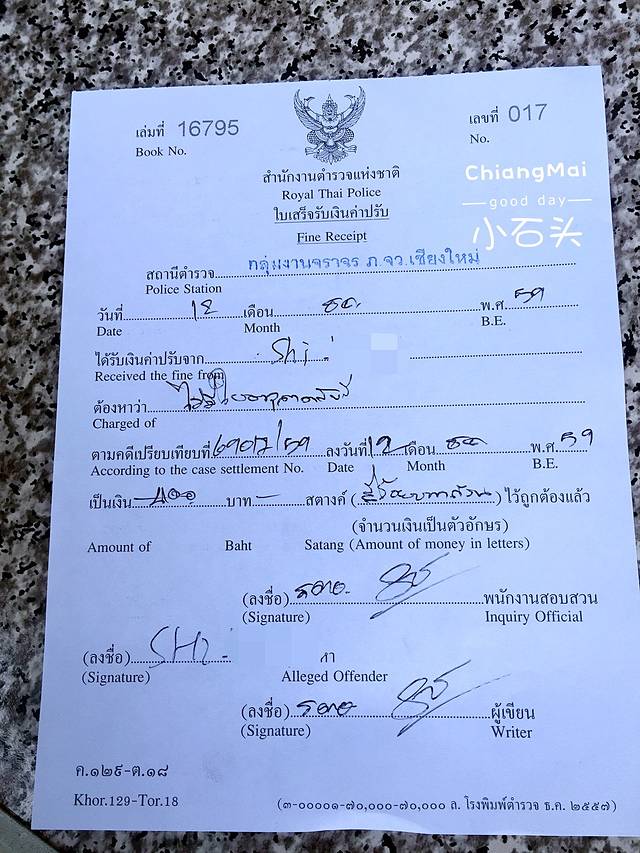 เล่มที่ 16795 เลขที่ 017
Book No. No.
ChiangMai
good day
小石头
สำนักงานตำรวจแห่งชาติ
Royal Thai Police
ใบเสร็จรับเงินค่าปรับ
Fine Receipt
สถานีตำรวจ กลุ่มงานจราจร ภ.จว.เชียงใหม่
Police Station
วันที่ 12 เดือน ธค. พ.ศ. 59
Date Month B.E.
ได้รับเงินค่าปรับจาก Shi
Received the fine from
ต้องหาว่า ไม่มีใบอนุญาตขับขี่
Charged of
ตามคดีเปรียบเทียบที่ ลงวันที่ 12 เดือน ธค พ.ศ. 59
According to the case settlement No. Date Month B.E.
เป็นเงิน 400 บาท - สตางค์ (สี่ร้อยบาทถ้วน) ไว้ถูกต้องแล้ว
(จำนวนเงินเป็นตัวอักษร)
Amount of Baht Satang (Amount of money in letters)
(ลงชื่อ) พนักงานสอบสวน
(Signature) Inquiry Official
(ลงชื่อ) SHI
(Signature) Alleged Offender
(ลงชื่อ) ผู้เขียน
(Signature) Writer
ค.๑๒๙-ต.๑๘
Khor.129-Tor.18 (๓-๐๐๐๐๑-๗๐,๐๐๐-๗๐,๐๐๐ ล. โรงพิมพ์ตำรวจ ธ.ค. ๒๕๕๗)